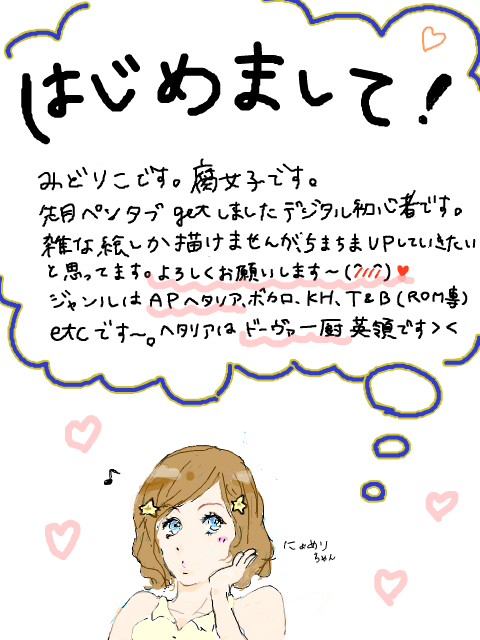 はじめまして!
みどりこです。腐女子です。
先月ペンタブgetしましたデジタル初心者です。
雑な絵しか描けませんがちまちまUPしていきたい
と思ってます。よろしくお願いします～(///)♥
ジャンルはAPヘタリア、ボカロ、KH、T&B(ROM専)
etcです〜。ヘタリアはドーヴァー厨英領です><
♪
にょめり
ちゃん